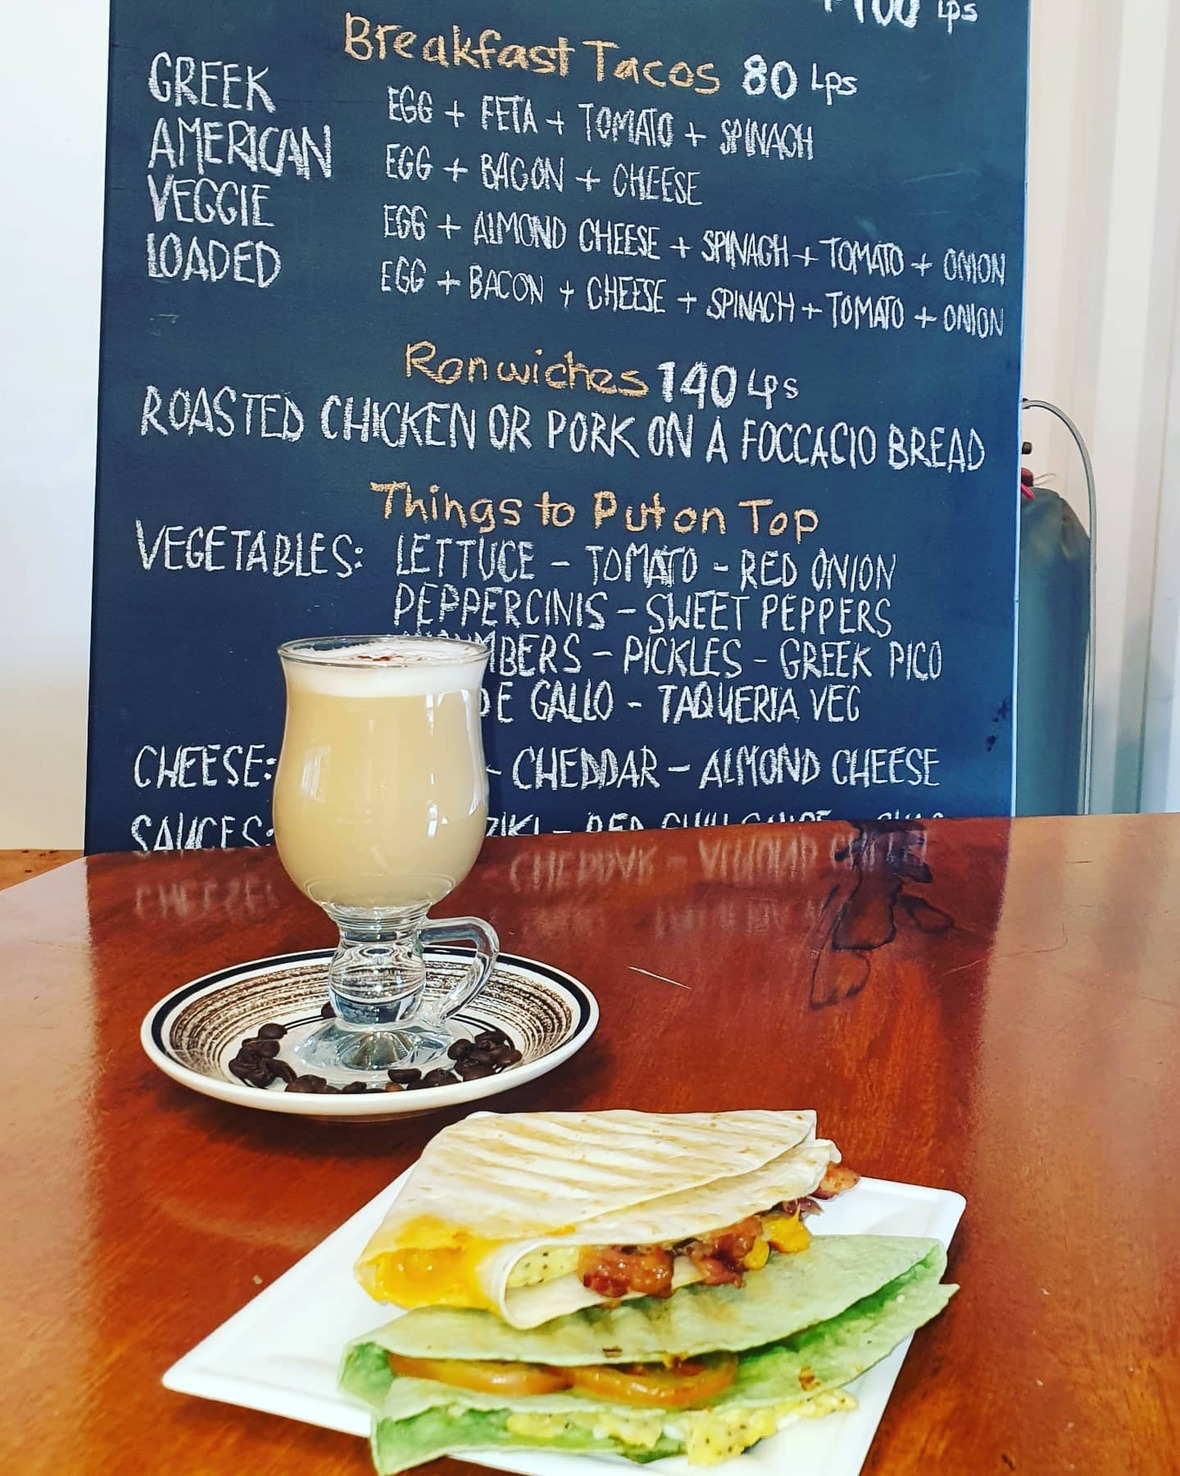 Lps
Breakfast Tacos 80 Lps
GREEK EGG + FETA + TOMATO + SPINACH
AMERICAN EGG + BACON + CHEESE
VEGGIE EGG + ALMOND CHEESE + SPINACH + TOMATO + ONION
LOADED EGG + BACON + CHEESE + SPINACH + TOMATO + ONION
Ronwiches 140 Lps
ROASTED CHICKEN OR PORK ON A FOCCACIO BREAD
Things to Put on Top
VEGETABLES: LETTUCE - TOMATO - RED ONION
PEPPERCINIS - SWEET PEPPERS
- PICKLES - GREEK PICO
DE GALLO - TAQUERIA VEG
CHEESE: - CHEDDAR - ALMOND CHEESE
SAUCES: - RED